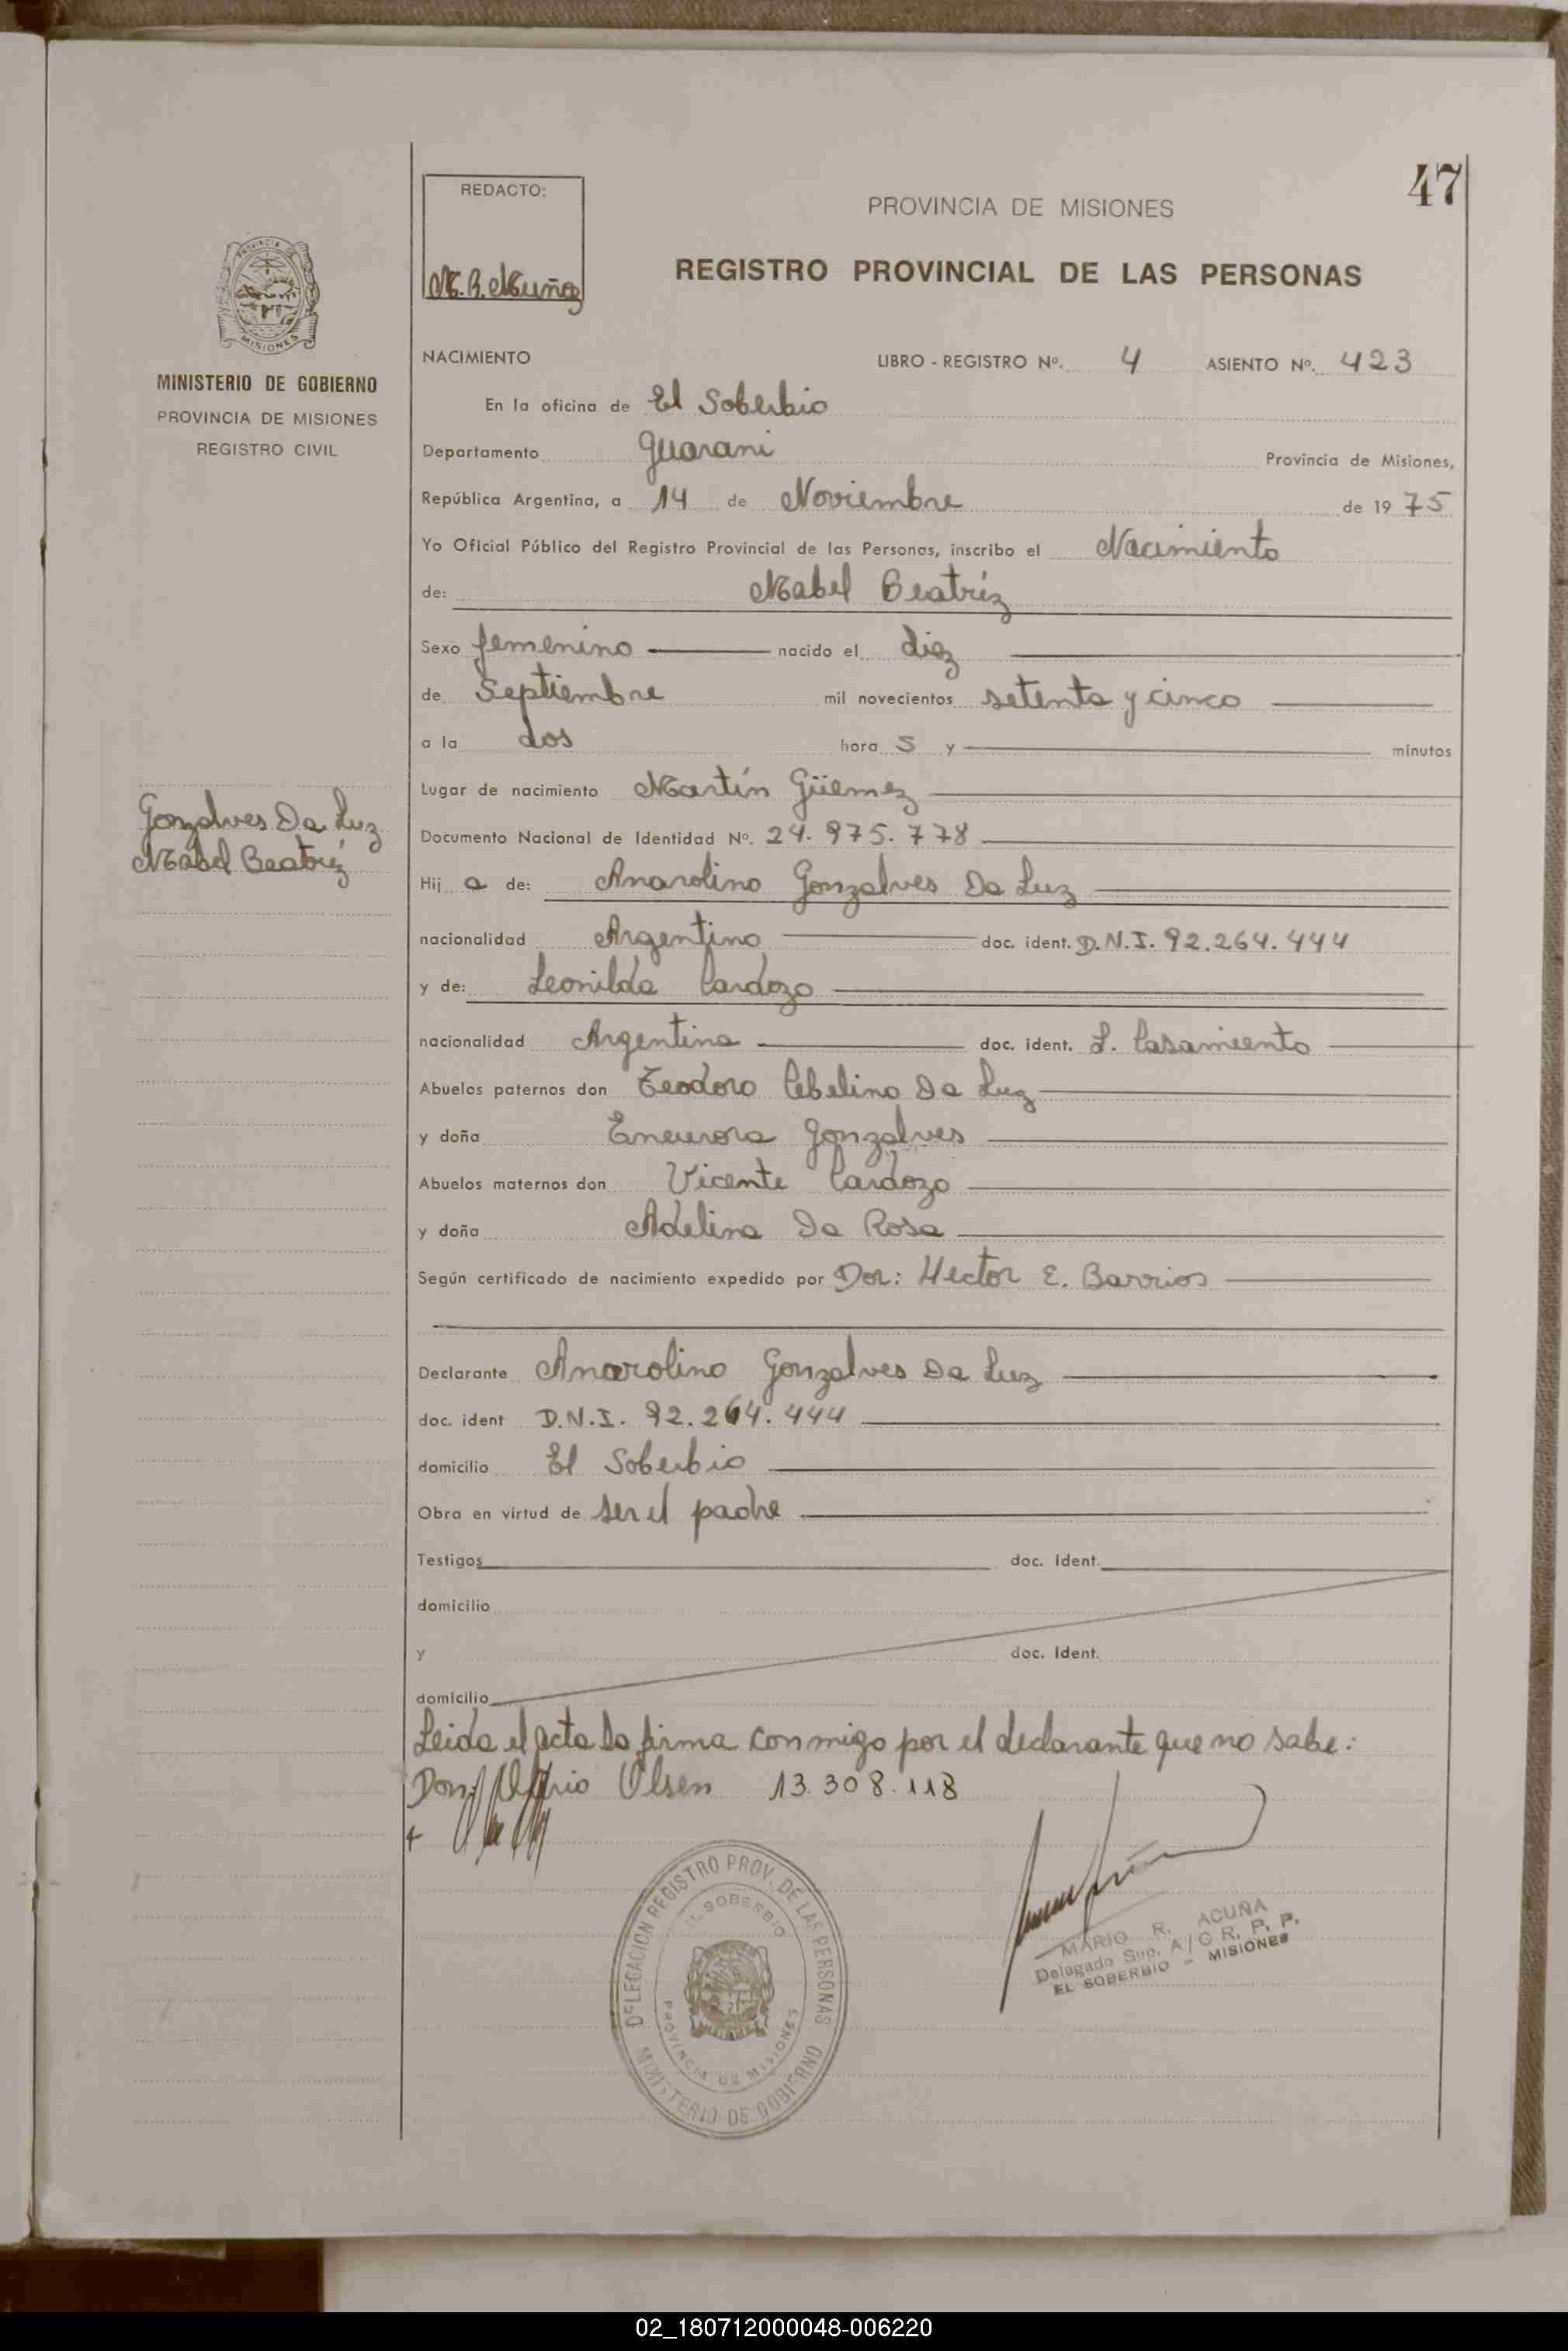 47
REDACTO:
PROVINCIA DE MISIONES
REGISTRO PROVINCIAL DE LAS PERSONAS
MINISTERIO DE GOBIERNO
PROVINCIA DE MISIONES
REGISTRO CIVIL
NACIMIENTO LIBRO - REGISTRO Nº. 4 ASIENTO Nº. 423
En la oficina de El Soberbio
Departamento Guarani Provincia de Misiones,
República Argentina, a 14 de Noviembre de 1975
Yo Oficial Público del Registro Provincial de las Personas, inscribo el Nacimiento
de: Mabel Beatríz
Sexo femenino nacido el diez
de Septiembre mil novecientos setenta y cinco
a la dos hora s y minutos
Lugar de nacimiento Martín Güemez
Gonzalves Da Luz
Mabel Beatríz
Documento Nacional de Identidad Nº. 24.975.778
Hij a de: Anarolino Gonzalves Da Luz
nacionalidad Argentino doc. ident. D.N.I. 92.264.444
y de: Leonilda Cardozo
nacionalidad Argentina doc. ident. L. Casamiento
Abuelos paternos don Teodoro Da Luz
y doña Gonzalves
Abuelos maternos don Vicente Cardozo
y doña Adelina Da Rosa
Según certificado de nacimiento expedido por Dor: Hector E. Barrios
Declarante Anarolino Gonzalves Da Luz
doc. ident D.N.I. 92.264.444
domicilio El Soberbio
Obra en virtud de ser el padre
Testigos doc. ident.
domicilio
y doc. ident.
domicilio
Leida el acta la firma conmigo por el declarante que no sabe:
Don: Olsen 13.308.118
DELEGACION REGISTRO PROV. DE LAS PERSONAS
EL SOBERBIO
PROVINCIA DE MISIONES
MINISTERIO DE GOBIERNO
MARIO R. ACUÑA
Delegado Sup. A/C R. P. P.
EL SOBERBIO - MISIONES
02_180712000048-006220